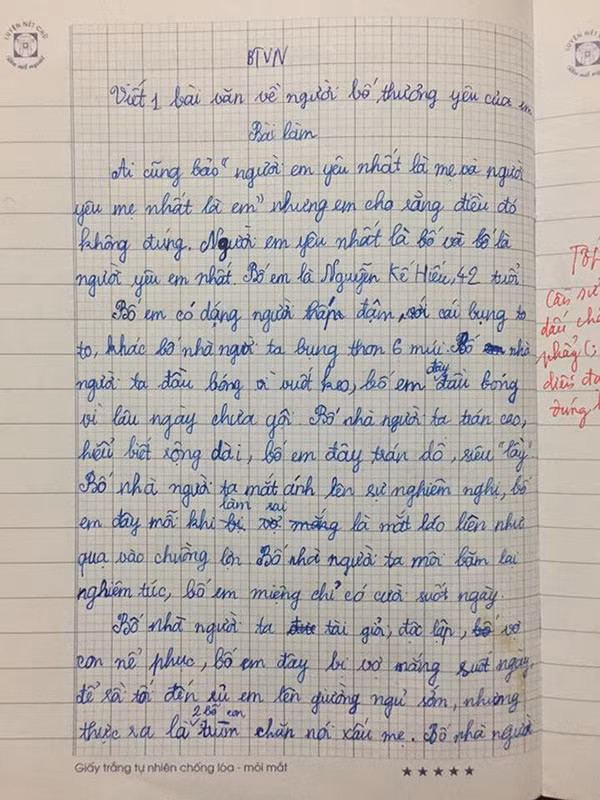 LUYỆN NÉT CHỮ
BTVN
Viết 1 bài văn về người bố thương yêu của em
Bài làm
Ai cũng bảo "người em yêu nhất là mẹ và người
yêu mẹ nhất là em" nhưng em cho rằng điều đó
không đúng. Người em yêu nhất là bố và bố là
người yêu em nhất. Bố em là Nguyễn Kế Hiếu, 42 tuổi
Bố em có dáng người thấp đậm, với cái bụng to
to, khác bố nhà người ta bụng thon 6 múi. Bố nhà
người ta đầu bóng vì vuốt keo, bố em đây đầu bóng
vì lâu ngày chưa gội. Bố nhà người ta trán cao,
hiểu biết rộng dài, bố em đây trán dô, siêu "lầy".
Bố nhà người ta mắt ánh lên sự nghiêm nghị, bố
em đây mỗi khi làm sai là mắt láo liên như
quạ vào chuồng lợn. Bố nhà người ta môi bặm lại
nghiêm túc, bố em miệng chỉ có cười suốt ngày.
Bố nhà người ta tài giỏi, độc lập, vợ
con nể phục, bố em đây bị vợ mắng suốt ngày,
để rồi tối đến rủ em lên giường ngủ sớm, nhưng
thực ra là 2 bố con trùm chăn nói xấu mẹ. Bố nhà người
Giấy trắng tự nhiên chống lóa - mỏi mắt
★★★★★
Cần sử
dấu chấ
phẩy (;